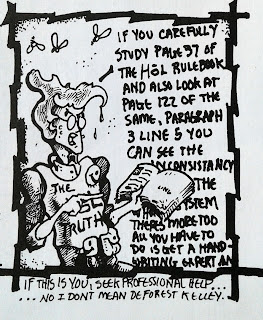 IF YOU CAREFULLY
STUDY PAGE 37 OF
THE HōL RULEBOOK
AND ALSO LOOK AT
PAGE 122 OF THE
SAME, PARAGRAPH
3 LINE 5 YOU
CAN SEE THE
INCONSISTANCY
THE
SYSTEM
THERES MORE TOO
ALL YOU HAVE TO
DO IS GET A HAND-
WRITING EXPERT AN
THE
TRUTH
IF THIS IS YOU, SEEK PROFESSIONAL HELP...
...NO I DONT MEAN DEFOREST KELLEY.